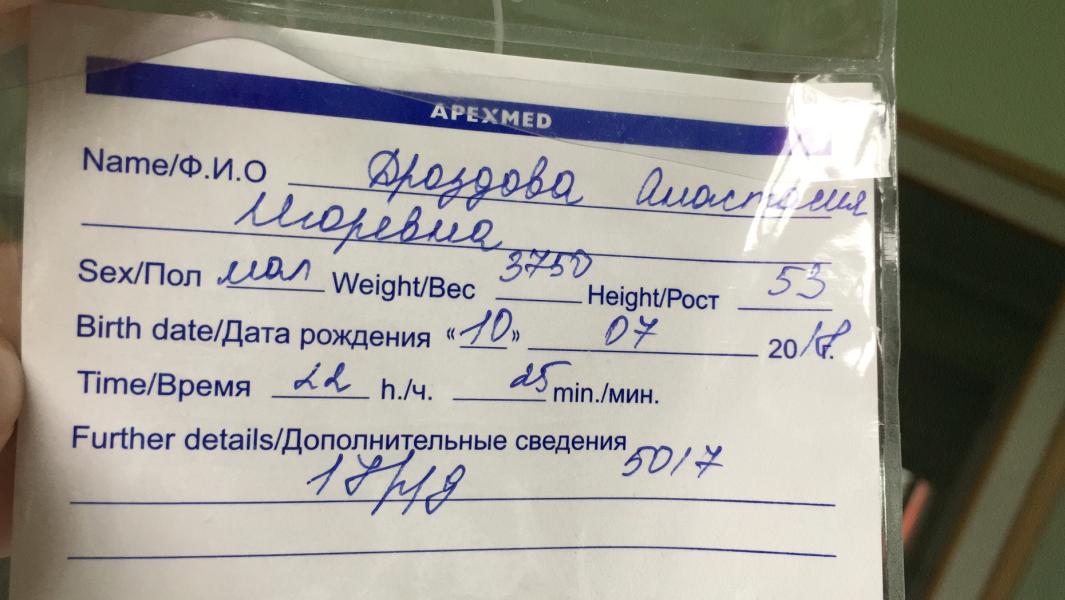 APEXMED
Name/Ф.И.О Дроздова Анастасия
Игоревна
Sex/Пол мал Weight/Вес 3750 Height/Рост 53
Birth date/Дата рождения «10» 07 2018г.
Time/Время 22 h./ч. 25 min./мин.
Further details/Дополнительные сведения
5017